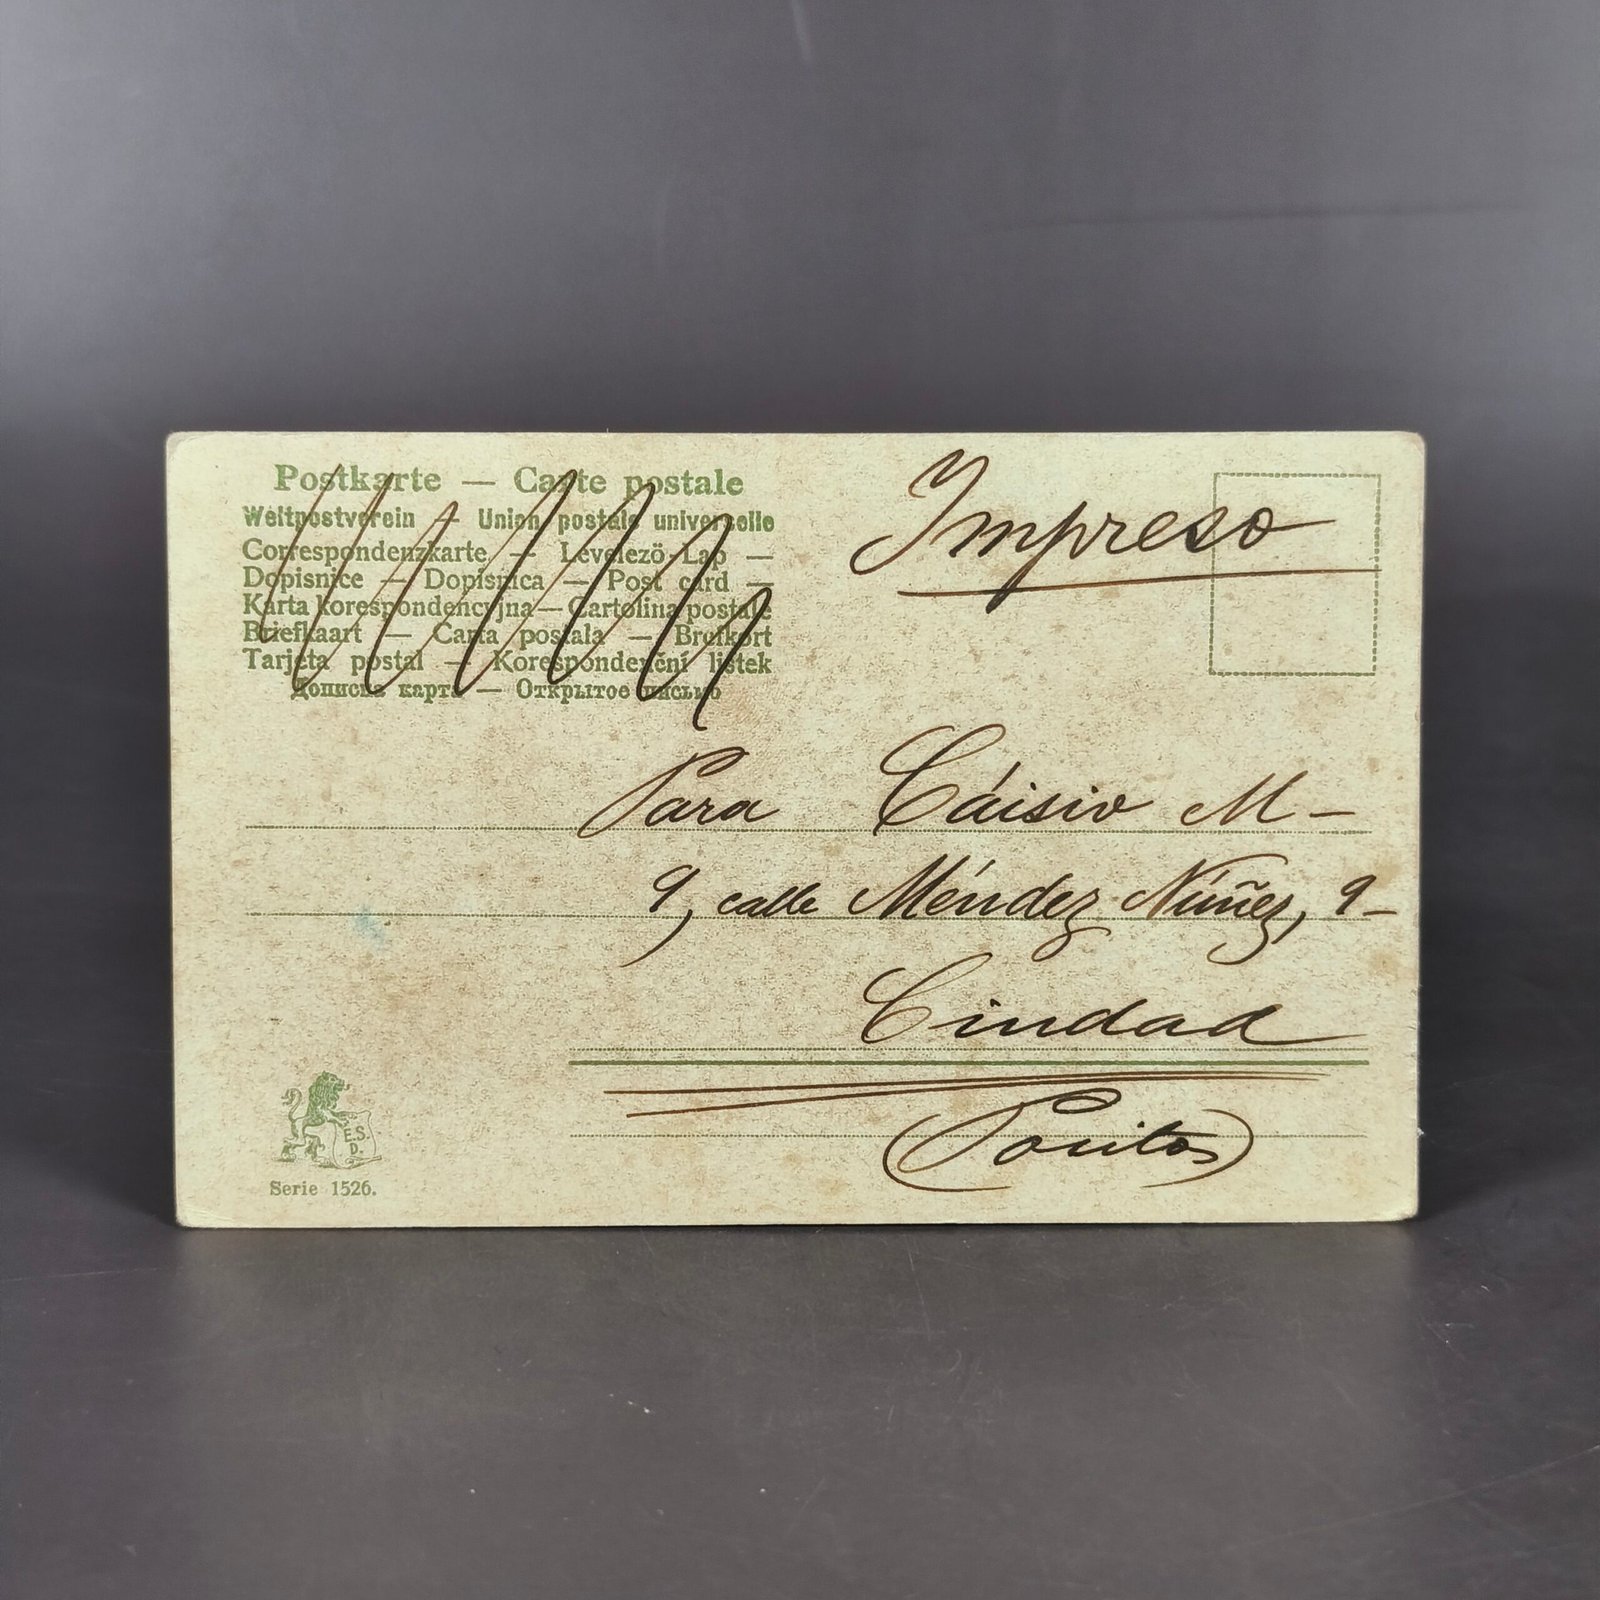 Postkarte — Carte postale
Weltpostverein — Union postale universelle
Correspondenzkarte — Levelező-Lap —
Dopisnice — Dopisnica — Post card —
Karta korespondencyjna — Cartolina postale
Briefkaart — Carta postala — Brefkort
Tarjeta postal — Korespondenční listek
Дописна карта — Открытое письмо
Impreso
Para Cáisio M-
9, calle Méndez Núñez, 9-
Ciudad
E.S.
D.
Serie 1526.